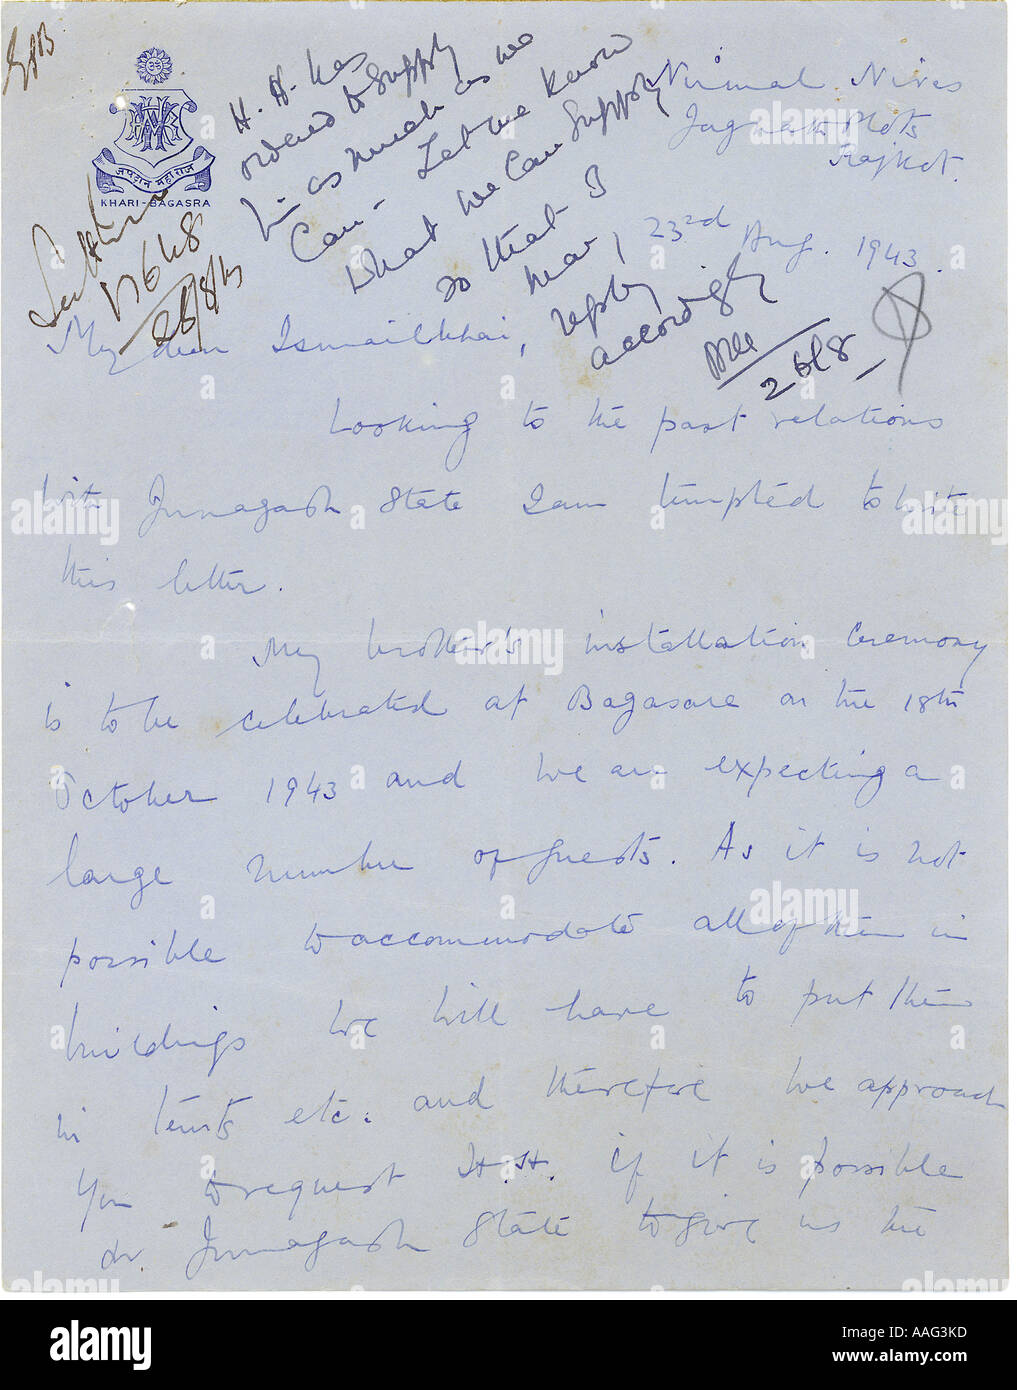 जयदान महाराज
KHARI-BAGASRA
H. H. has
ordered to supply
him as much as we
can. Let me know
what we can supply
so that I
may
reply
accordingly
26/8
17648
26/8/43
Nirmal Nivas
Jagnath Plots
Rajkot.
23rd Aug. 1943.
My dear Ismailbhai,
Looking to the past relations
with Junagadh State I am tempted to write
this letter.
My brother's installation ceremony
is to be celebrated at Bagasara on the 18th
October 1943 and we are expecting a
large number of guests. As it is not
possible to accommodate all of them in
buildings we will have to put them
in tents etc. and therefore we approach
you to request H.H. if it is possible
for Junagadh State to give us the
alamy
Image ID: AAG3KD
www.alamy.com